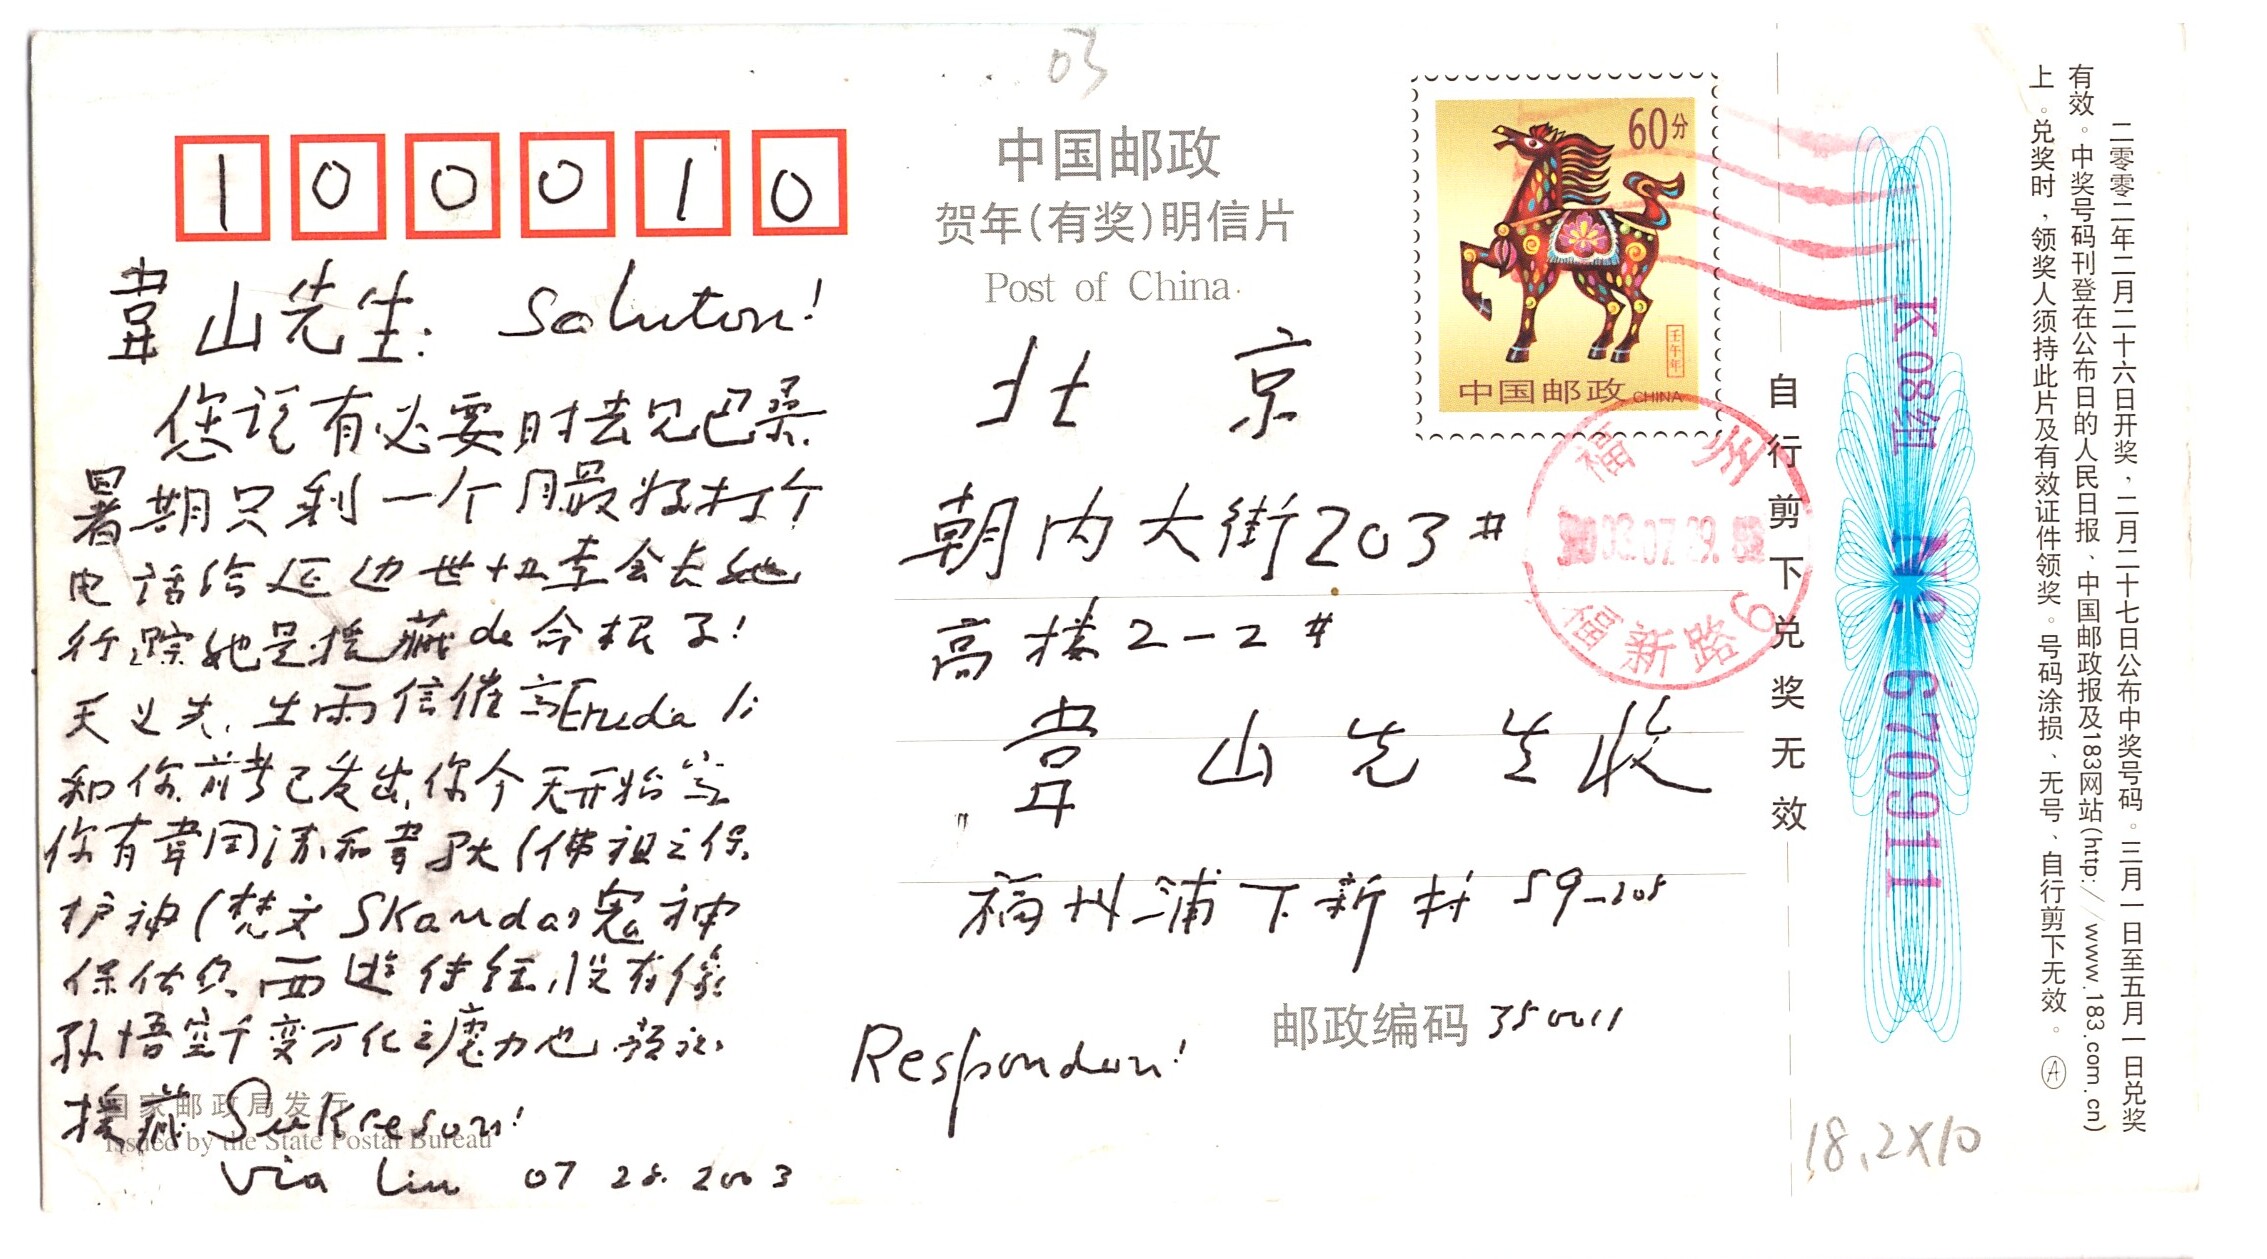 03
100010
韋山先生: Saluton!
您说有必要时去见巴桑
暑期只剩一个月最好打个
电话给延边世协李会长她
行踪她是援藏de命根子!
天义先生两信催写Eruda li
和你.前者已发出,你今天开始写
你有韋国清和韋驮(佛祖之保
护神(梵文Skanda)
保佑你.西遊
孙悟空千变万化之魔力也.预祝
援藏 Sukceson!
Via Liu 07 28. 2003
国家邮政局发行
Issued by the State Postal Bureau
中国邮政
贺年(有奖)明信片
Post of China
北京
朝内大街203#
高楼2-2#
韋山先生收
福州浦下新村 59-205
邮政编码 350011
Respondon!
60分
壬午年
中国邮政 CHINA
福州
福新路6
自行剪下兑奖无效
K08组 No 670911
二零零二年二月二十六日开奖,二月二十七日公布中奖号码。三月一日至五月一日兑奖
有效。中奖号码刊登在公布日的人民日报、中国邮政报及183网站(http://www.183.com.cn)
上。兑奖时,领奖人须持此片及有效证件领奖。号码涂损、无号、自行剪下无效。 A
18.2X10